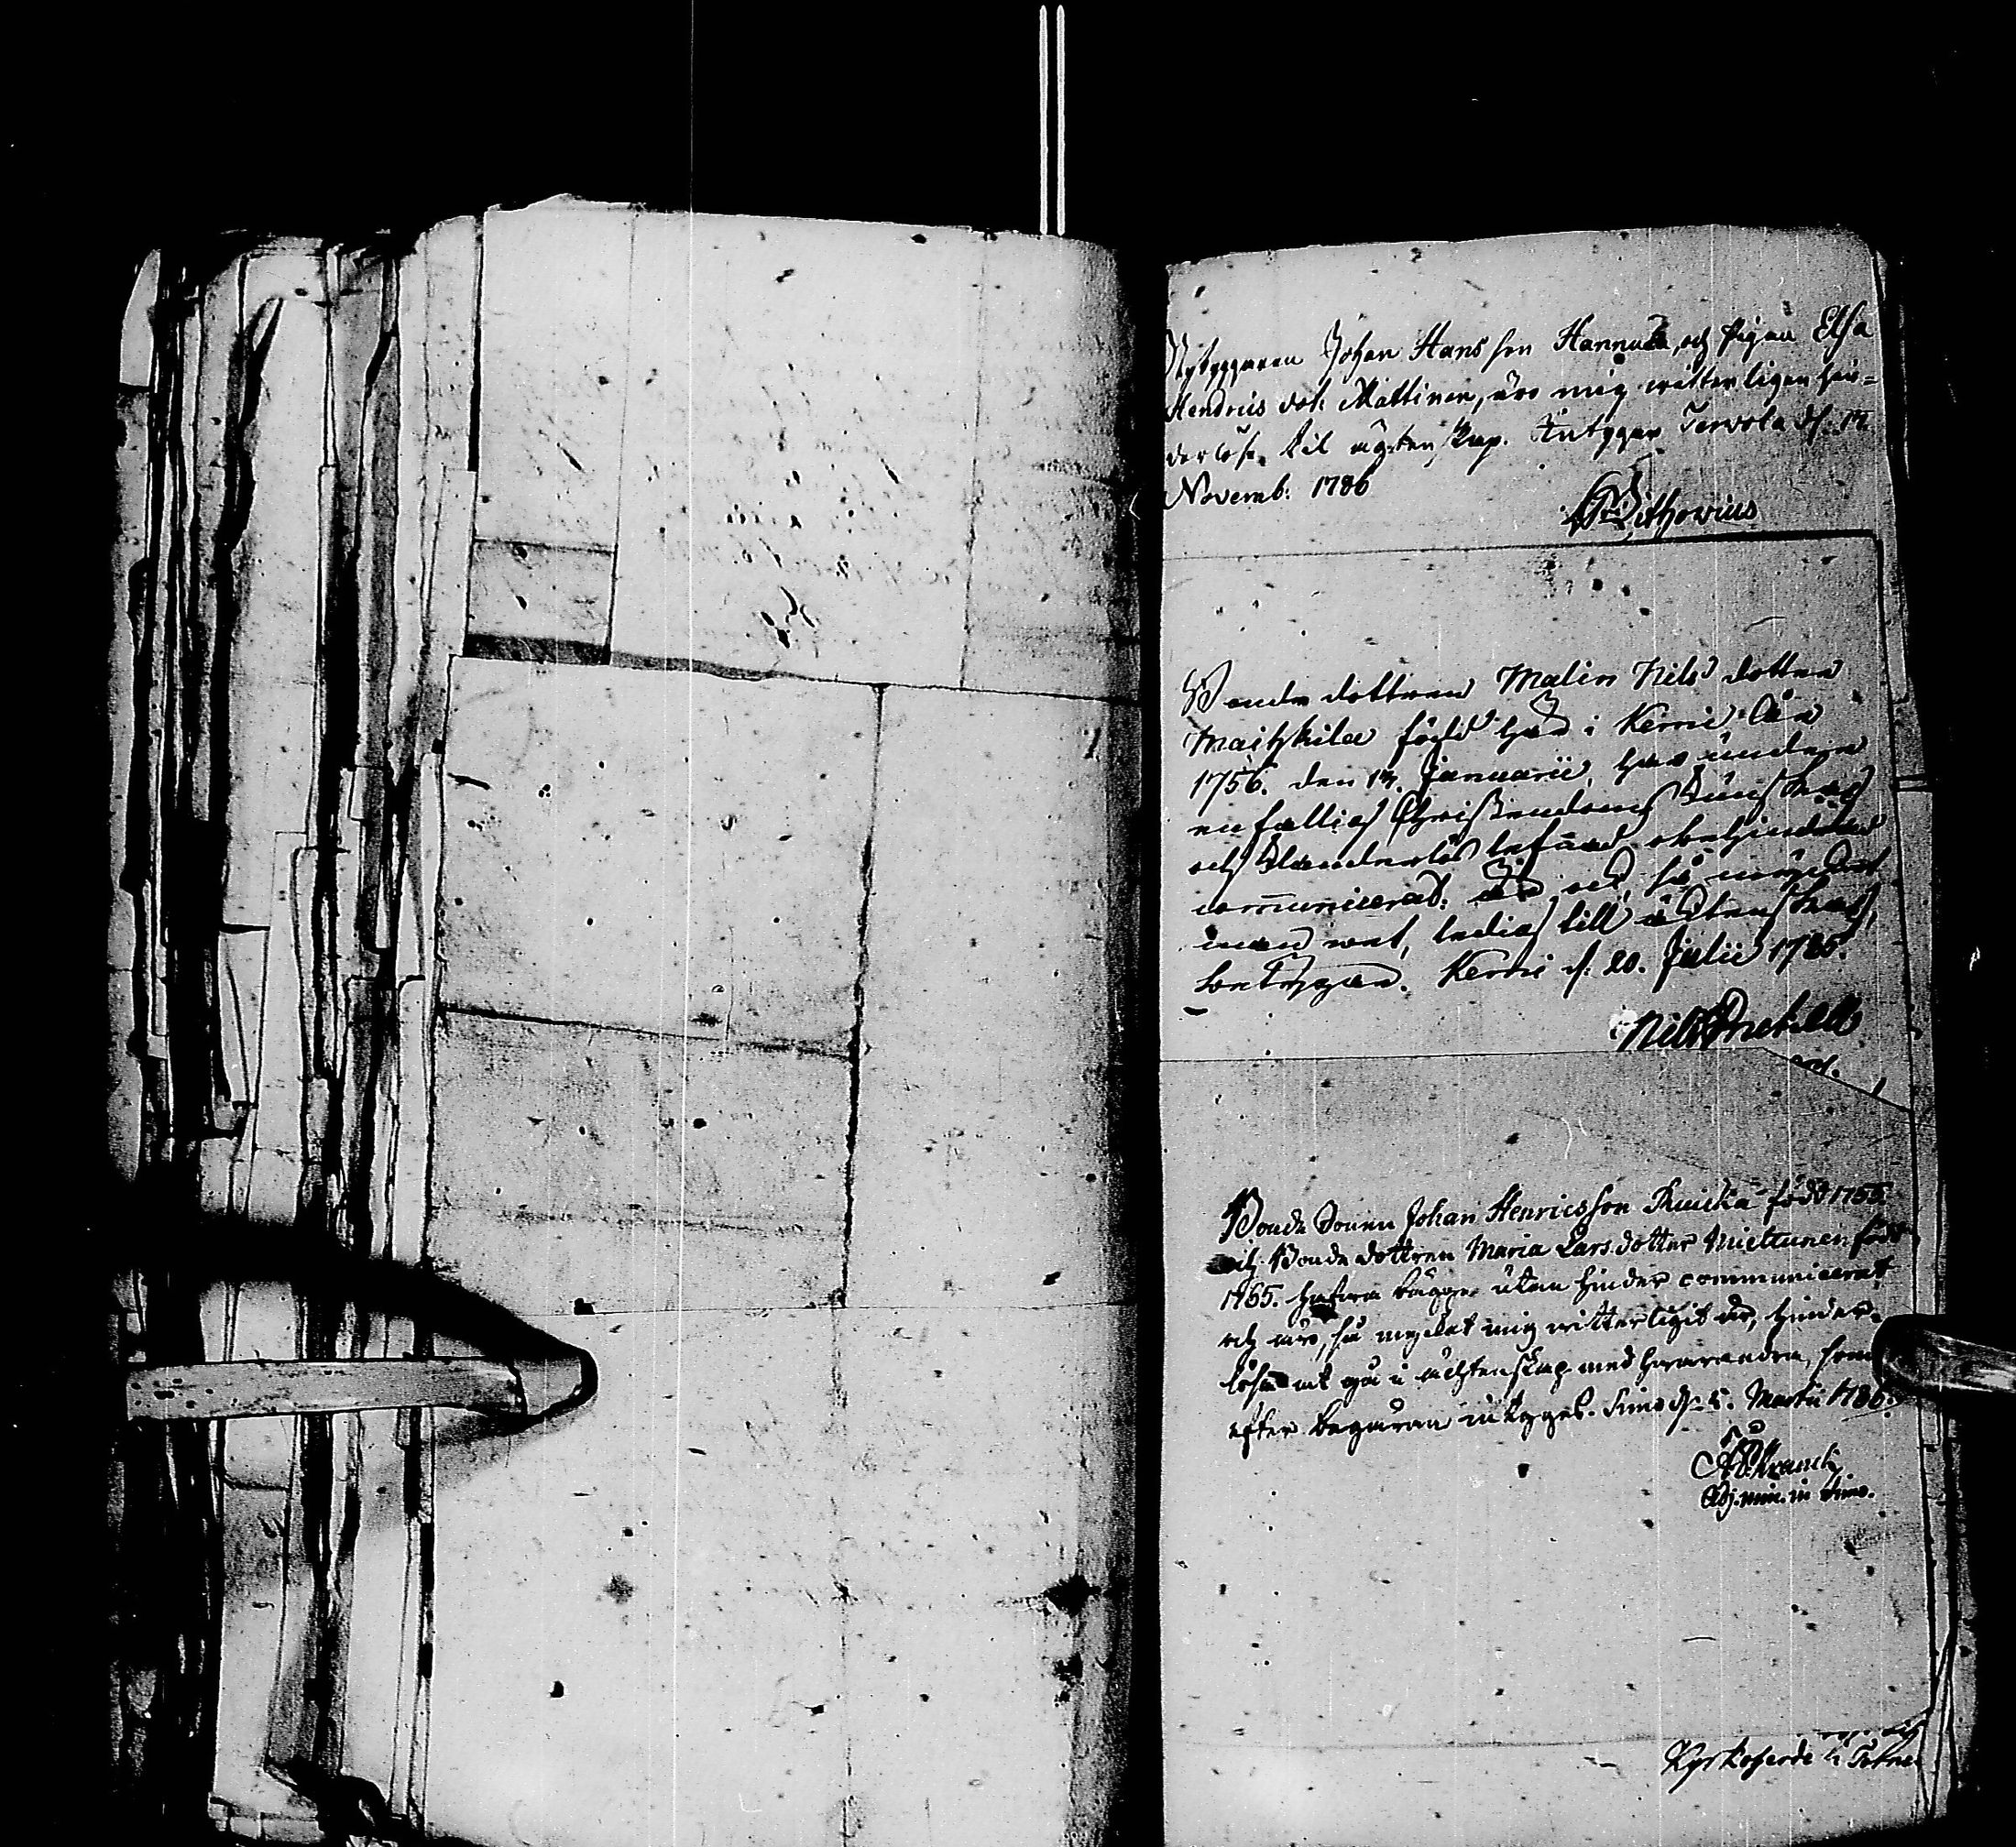 Nybyggaren Johan Hansson Hannula, och Pigan Elsa
Hendrics dot: Mattinen, äro mig witterligen hin=
derlöse til ägtenskap. Intygar Tervola d: 12
Novemb: 1786
Withovius
Bonde dottren Malin Nils dotter
Maitzkila född här i Kemi Län
1756. den 17. Januarii, har under
enfallig Christendoms Kunskap
och Klanderlös lefnad obehindrad
communicerat: är ock, så mycket
man wet, ledig till ächtenskap,
betygar. Kemi d: 20. Julii 1785.
Nils
Bonde Sonen Johan Henricsson Ruicka född 1755.
och Bonde dottren Maria Larsdotter Miettunen född
1765. hafwa bägge utan hinder communicerat
och äro, så mycket mig witterligit är, hinder-
löse at gå i ächtenskap med hwarandra, som
efter begäran intygges. Simo d: 5. Martii 1786.
Kranck
Adj. min. in Simo.
Kyrkoherde i Torne